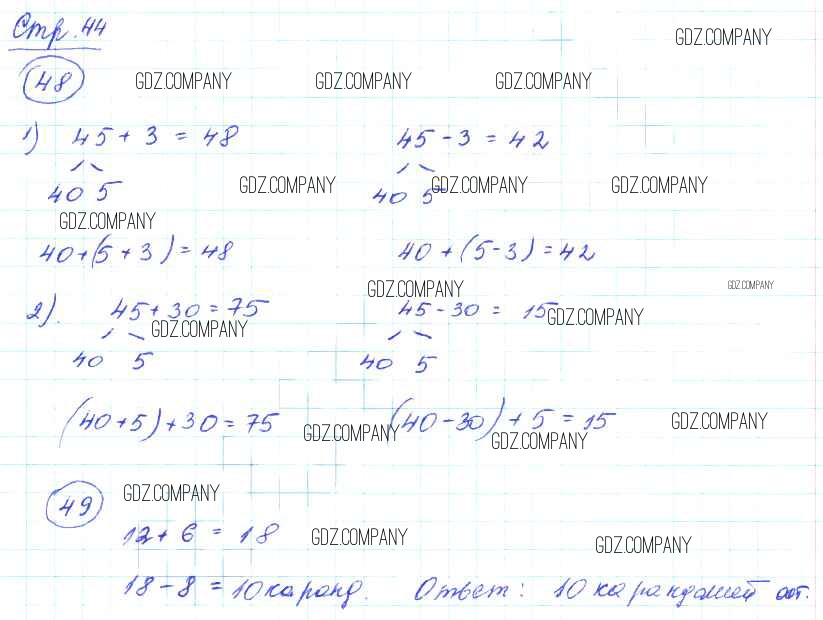 Стр. 44
GDZ.COMPANY
48 GDZ.COMPANY GDZ.COMPANY GDZ.COMPANY
1) 45 + 3 = 48 45 - 3 = 42
40 5 GDZ.COMPANY 40 5 GDZ.COMPANY GDZ.COMPANY
GDZ.COMPANY
40+(5+3)=48 40+(5-3)=42
GDZ.COMPANY GDZ.COMPANY
2). 45+30=75 45-30 = 15 GDZ.COMPANY
GDZ.COMPANY
40 5 40 5
(40+5)+30=75 GDZ.COMPANY (40-30)+5=15 GDZ.COMPANY
GDZ.COMPANY
49 GDZ.COMPANY
12+6 = 18 GDZ.COMPANY GDZ.COMPANY
18-8=10 каранд. Ответ: 10 карандашей ост.